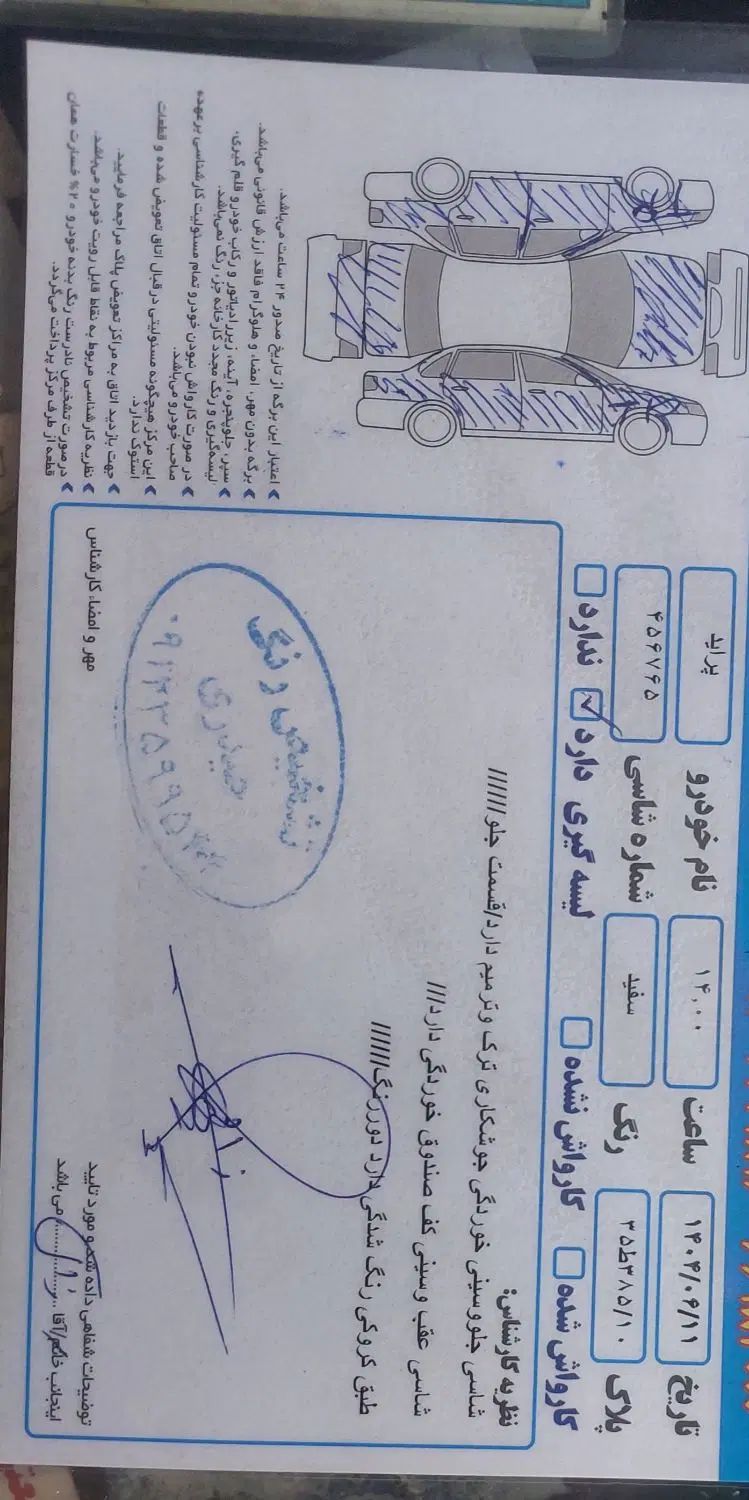 تاریخ ۱۴۰۴/۰۶/۱۱ ساعت ۱۴,۰۰ نام خودرو پراید
پلاک ۳۵ط۳۸۵/۱۰ رنگ سفید شماره شاسی ۴۵۶۷۶۵
کارواش شده کارواش نشده لیسه گیری دارد ندارد
نظریه کارشناس:
شاسی جلو وسینی خوردگی جوشکاری ترک وترمیم دارد/قسمت جلو//////
شاسی عقب وسینی کف صندوق خوردگی دارد///
طبق کروکی رنگ شدگی دارد دوررنگ//////
تشخیص رنگ
حیدری
مهر و امضاء کارشناس
توضیحات شفاهی داده شده و مورد تایید
اینجانب خانم/آقا .......... می باشد
اعتبار این برگه از تاریخ صدور ۲۴ ساعت می‌باشد.
برگه بدون مهر، امضاء و هلوگرام فاقد ارزش قانونی می‌باشد.
سپر، جلوپنجره، آینه، زیررادیاتور و رکاب خودرو قلم گیری،
لیسه‌گیری و رنگ مجدد کارخانه جزء رنگ نمی‌باشد.
در صورت کارواش نبودن خودرو تمام مسئولیت کارشناسی برعهده
صاحب خودرو می‌باشد.
این مرکز هیچگونه مسئولیتی در قبال اتاق تعویض شده و قطعات
استوک ندارد.
جهت بازدید اتاق به مراکز تعویض پلاک مراجعه فرمایید.
نظریه کارشناسی مربوط به نقاط قابل رویت خودرو می‌باشد.
در صورت تشخیص نادرست رنگ بدنه خودرو ۲۰% خسارت همان
قطعه از طرف مرکز پرداخت می‌گردد.